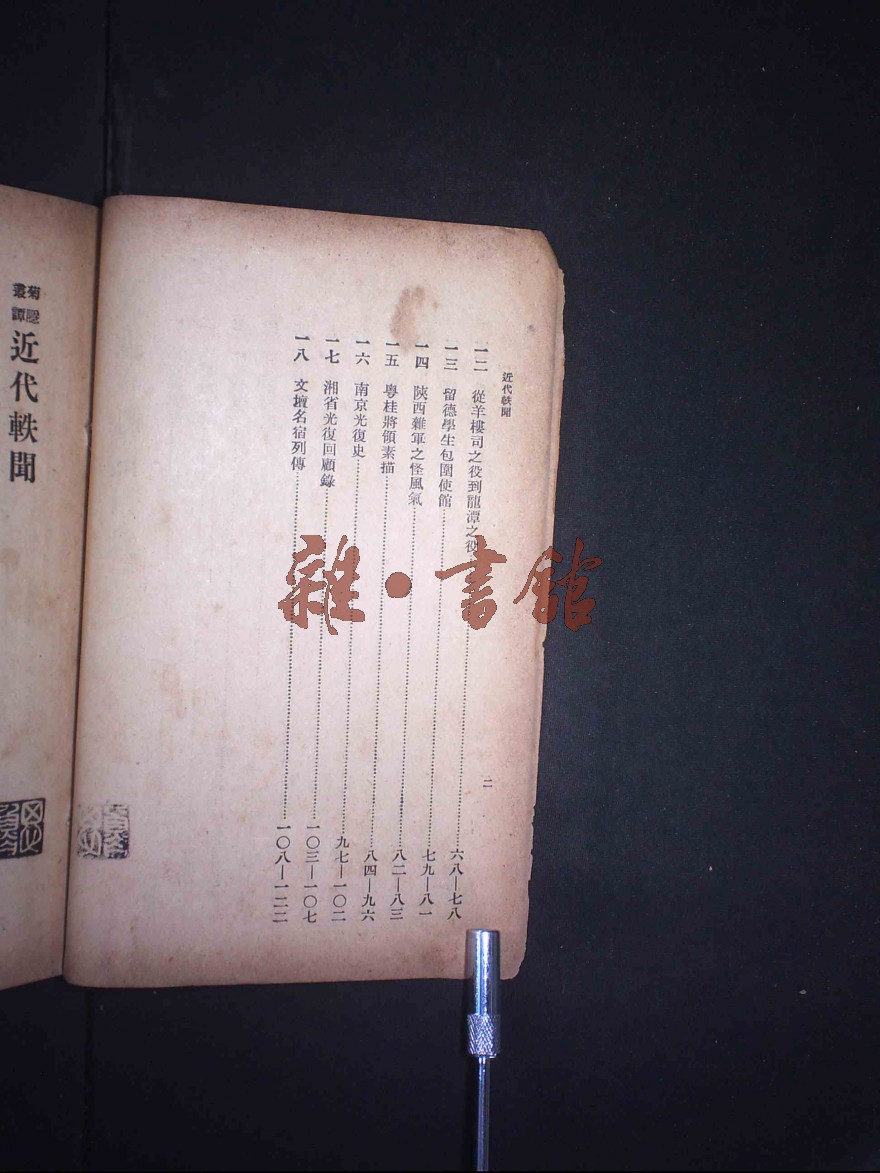 近代軼聞
一二 從羊樓司之役到龍潭之役………六八—七八
一三 留德學生包圍使館………七九—八一
一四 陝西雜軍之怪風氣………八二—八三
一五 粵桂將領素描………八四—九六
一六 南京光復史………九七—一〇二
一七 湘省光復回顧錄………一〇三—一〇七
一八 文壇名宿列傳………一〇八—一二二
二
菊隱
叢譚
近代軼聞
雜·書館